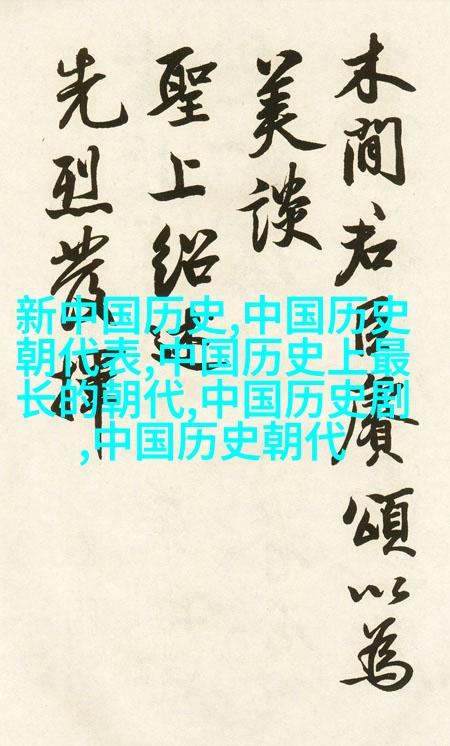 木間君臣賡頌以為
美談
聖上紹述
先烈發揮
新中国历史,中国历史
朝代表,中国历史上最
长的朝代,中国历史剧
,中国历史朝代